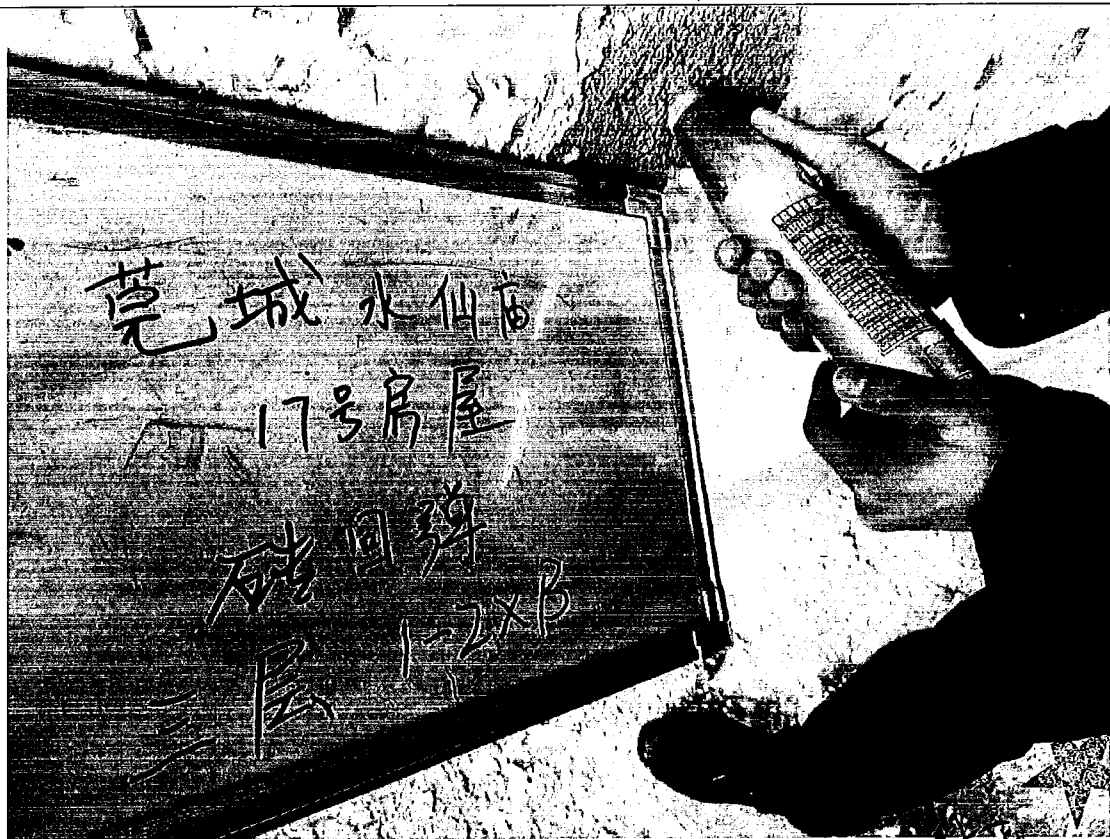 莞城水仙庙
17号房屋
砼回弹
三层 1-2×B